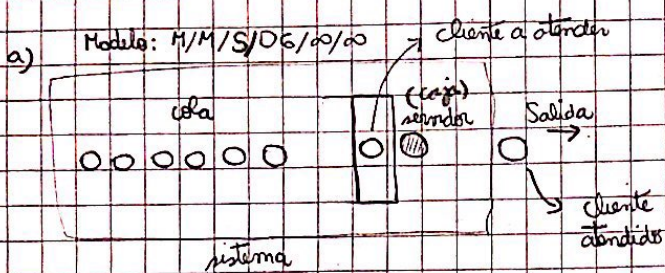 a) Modelo: M/M/S/DG/∞/∞
cliente a atender
cola
(caja)
servidor
Salida
cliente
atendido
sistema